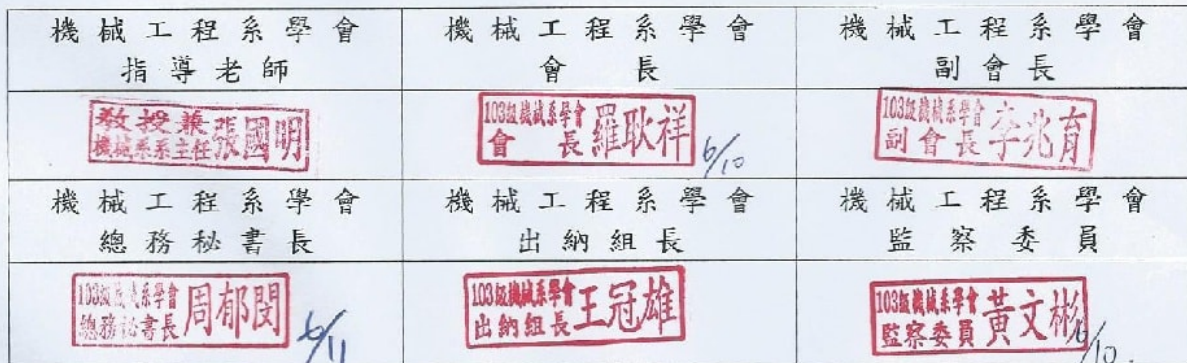 機械工程系學會
指導老師
機械工程系學會
會長
機械工程系學會
副會長
教授兼
機械系系主任張國明
103級機械系學會
會長羅耿祥
6/10
103級機械系學會
副會長李兆育
機械工程系學會
總務秘書長
機械工程系學會
出納組長
機械工程系學會
監察委員
103級機械系學會
總務祕書長周郁閔
6/11
103級機械系學會
出納組長王冠雄
103級機械系學會
監察委員黃文彬
6/10